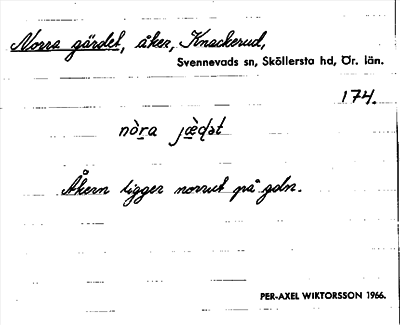 Norra gärdet, åker, Knackerud,
Svennevads sn, Sköllersta hd, Ör. län.
174.
nò̱ra jæ̀ḍət
Åkern ligger norrut på gdn.
PER-AXEL WIKTORSSON 1966.